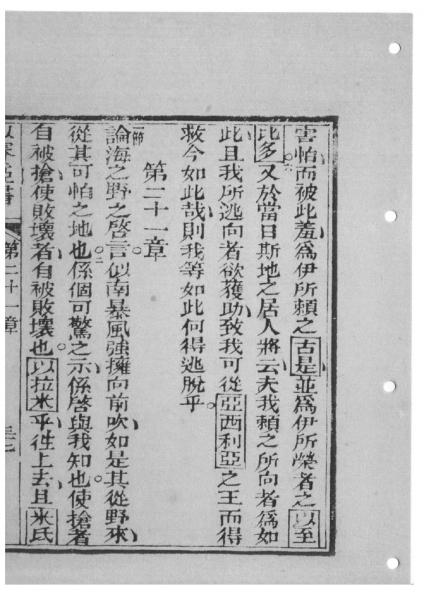 害怕而被此羞為伊所賴之古是並為伊所榮者之以至
比多又於當日斯地之居人將云夫我賴之所向者為如
此且我所逃向者欲獲助致我可從亞西利亞之王而得
救今如此哉則我等如此何得逃脫乎
第二十一章
一節
論海之野之啓言似南暴風強擁向前吹如是其從野來
從其可怕之地也二係個可驚之示係啓與我知也使搶者
自被搶使敗壞者自被敗壞也以拉米乎往上去且米氏
第二十一章